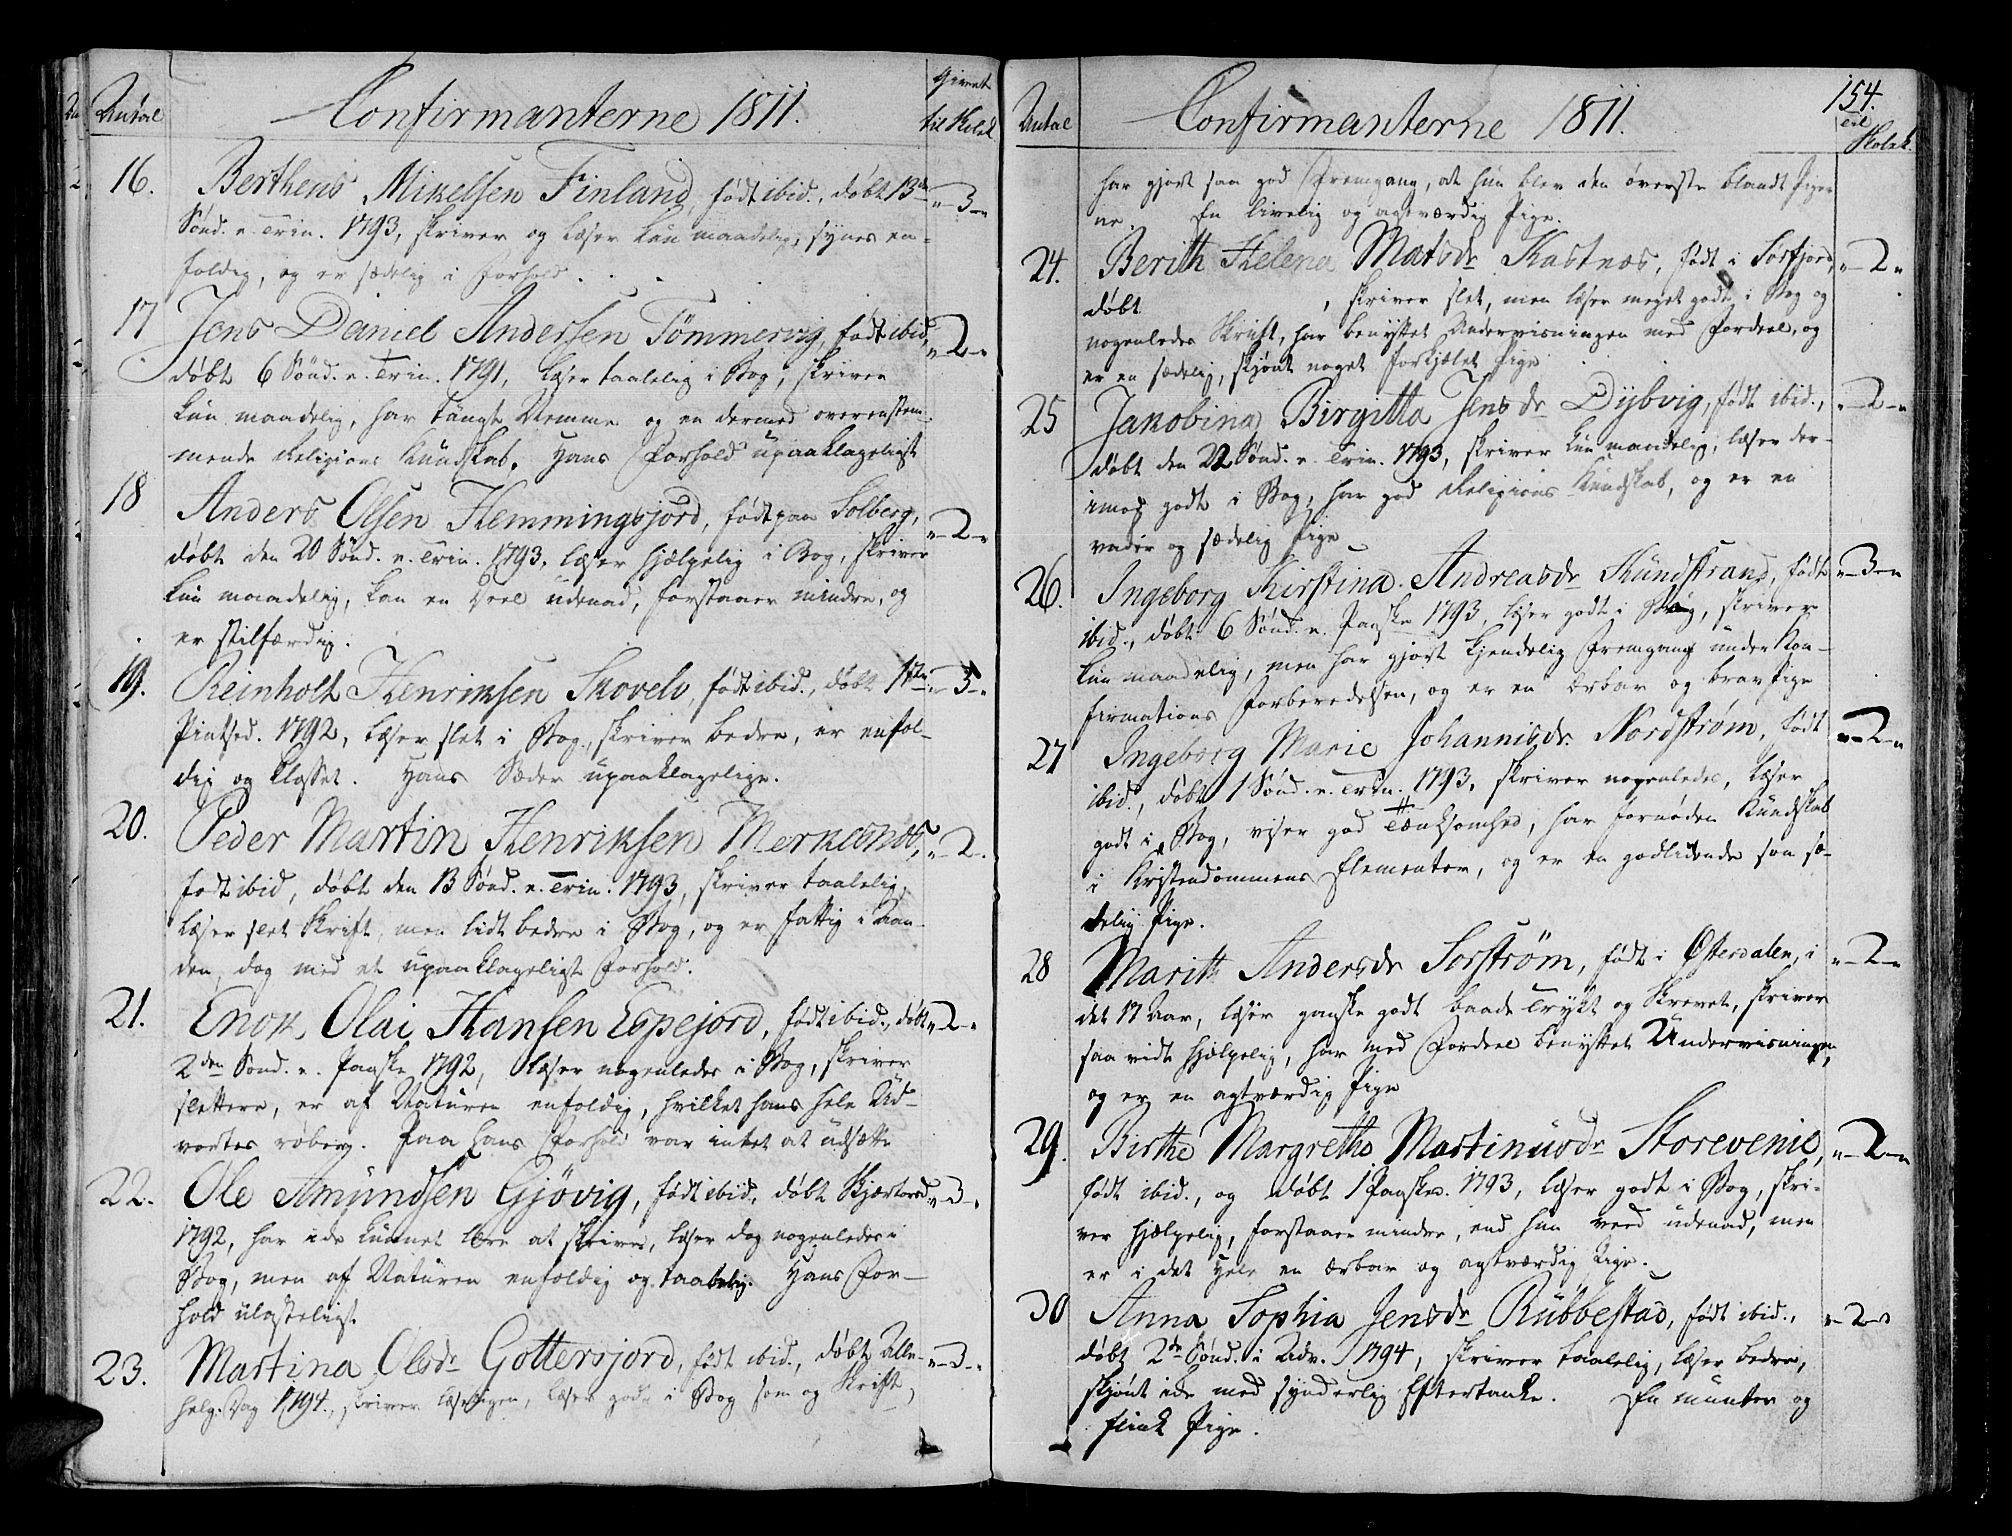 Antal
Confirmanterne 1811.
Givent
til Skolek
16. Berthens Mikelsen Finland, født ibid., døbt 13de „-3-„
Sønd. e. Trin. 1793, skriver og læser kun maadelig, synes en-
foldig, og er sædelig i Forhold.
17 Jens Daniel Andersen Tömmervig, født ibid, „-2-„
døbt 6 Sønd. e. Trin. 1791, læser taalelig i Bog, skriver
kun maadelig, har tungt Nemme og en dermed overenstem-
mende Religions Kundskab. Hans Forhold upaaklageligt
18 Anders Olsen Hemmingsjord, født paa Solberg, „-2-„
døbt den 20 Sønd. e. Trin. 1793, læser hjælpelig i Bog, skriver
kun maadelig, kan en Deel udenad, forstaaer mindre, og
er stilfærdig.
19. Reinholt Henriksen Skovelv, født ibid., døbt 1ste „-3-„
Pintsed. 1792, læser slet i Bog, skriver bedre, er enfol-
dig og klosset. Hans Sæder upaaklagelige.
20. Peder Martin Henriksen Merkesnes, „-2-„
født ibid, døbt den 13 Sønd. e. Trin. 1793, skriver taalelig,
læser slet Skrift, men lidt bedre i Bog, og er fattig i Aan-
den, dog med et upaaklageligt Forhold.
21. Enok Olai Hansen Espejord, født ibid., døbt „-2-„
2den Sønd. e. Paaske 1792, læser nogenledes i Bog, skriver
slettere, er af Naturen enfoldig, hvilket hans hele Ud-
vortes røber. Paa hans Forhold var intet at udsætte
22. Ole Amundsen Gjøvig, født ibid, døbt Skjærtorsd „-3-„
1792, har ikke kunnet lære at skrive, læser dog nogenledes i
Bog, men af Naturen enfoldig og taabelig. Hans For-
hold ulasteligt.
23. Martina Olsdr Gottersjord, født ibid., døbt Alle- „-3-„
helg. Dag 1794, skriver læseligen, læser godt i Bog som og Skrift,
Antal
Confirmanterne 1811.
154.
til
Skolek.
har gjort saa god Fremgang, at hun blev den øverste blandt Piger
ne. En livelig og agtværdig Pige.
24. Berith Helena Matsdr Kastnæs, født i Sørfjord, „-2-„
døbt , skriver slet, men læser meget godt i Bog og
nogenledes Skrift, har benyttet Undervisningen med Fordeel, og
er en sædelig, skjønt noget forkjælet Pige
25 Jakobina Birgitta Jensdr Dybvig, født ibid., „-2-„
døbt den 22 Sønd. e. Trin. 1793, skriver kun maadelig, læser der-
imod godt i Bog, har god Religions Kundskab, og er en
vakker og sædelig Pige
26. Ingeborg Kirstina Andreasdr Kundstrand, født „-3-„
ibid., døbt 6 Sønd. e. Paaske 1793, læser godt i Bog, skriver
kun maadelig, men har gjort kjendelig Fremgang under Kon-
firmations Forberedelsen, og er en ærbar og brav Pige
27 Ingeborg Marie Johannisdr. Nordstrøm, født „-2-„
ibid., døbt 1 Sønd. e. Trin. 1793, skriver nogenledes, læser
godt i Bog, viser god Tænksomhed, har fornøden Kundskab
i Kristendommens Elementer, og er en godlidende som sæ-
delig Pige.
28 Marith Andersdr Sorstrøm, født i Østerdalen, i „-2-„
det 17 Aar, læser ganske godt baade Trykt og Skrevet, skriver
saa vidt hjælpelig, har med Fordeel benyttet Undervisningen,
og er en agtværdig Pige
29. Birthe Margrethe Martinusdr Storevenie, „-2-„
født ibid., og døbt 1 Paasked. 1793, læser godt i Bog, skri-
ver hjælpelig, forstaaer mindre, end hun veed udenad, men
er i det Hele en ærbar og agtværdig Pige.
30 Anna Sophia Jensdr Rubbestad, født ibid., „-2-„
døbt 2de Sønd. i Adv. 1794, skriver taalelig, læser bedre,
skjønt ikke med synderlig Eftertanke. En munter og
flink Pige.